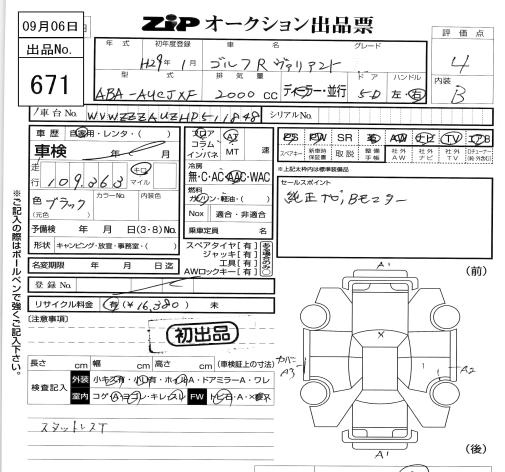 09月06日
出品No.
671
ZIP オークション出品票
年式 初年度登録 車名 グレード
H29年1月 ゴルフR ヴァリアント
型式 排気量 ドア ハンドル
ABA-AUCJXF 2000cc ディーラー・並行 5D 左・右
評価点
4
内装
B
車台No. WVWZZZAUZHP511848
シリアルNo.
車歴 自家用・レンタ・( )
車検 年 月
走行 109,363 キロ マイル
色 ブラック カラーNo. 内装色
(元色)
予備検 年 月 日(3・8)No.
形状 キャンピング・放宣・事務室・( )
名変期限 年 月 日
登録No.
リサイクル料金 有(¥16,380) 未
フロア コラム インパネ
AT MT 速
冷房
無・C・AC・AAC・WAC
燃料
ガソリン・軽油・( )
Nox 適合・非適合
乗車定員 名
スペアタイヤ【有】
ジャッキ【有】
工具【有】
AWロックキー【有】
PS PW SR 革 AW ナビ TV エアB
スペアキー 新車時保証書 取説 整備手帳 社外AW 社外ナビ 社外TV
※上記太枠内は標準装備品
セールスポイント
純正ナビ, Bモニター
[注意事項]
初出品
長さ cm 幅 cm 高さ cm (車検証上の寸法)
検査記入 外装 小キズ有・小凹有・ホイルA・ドアミラーA・ワレ
室内 コゲA・ヨゴレ・キレ・スレ FW トビ石・A・×要ス
スタットレスT
※ご記入の際はボールペンで強くご記入下さい。
(前)
A1
X
カバー
A3
A2
A1
(後)